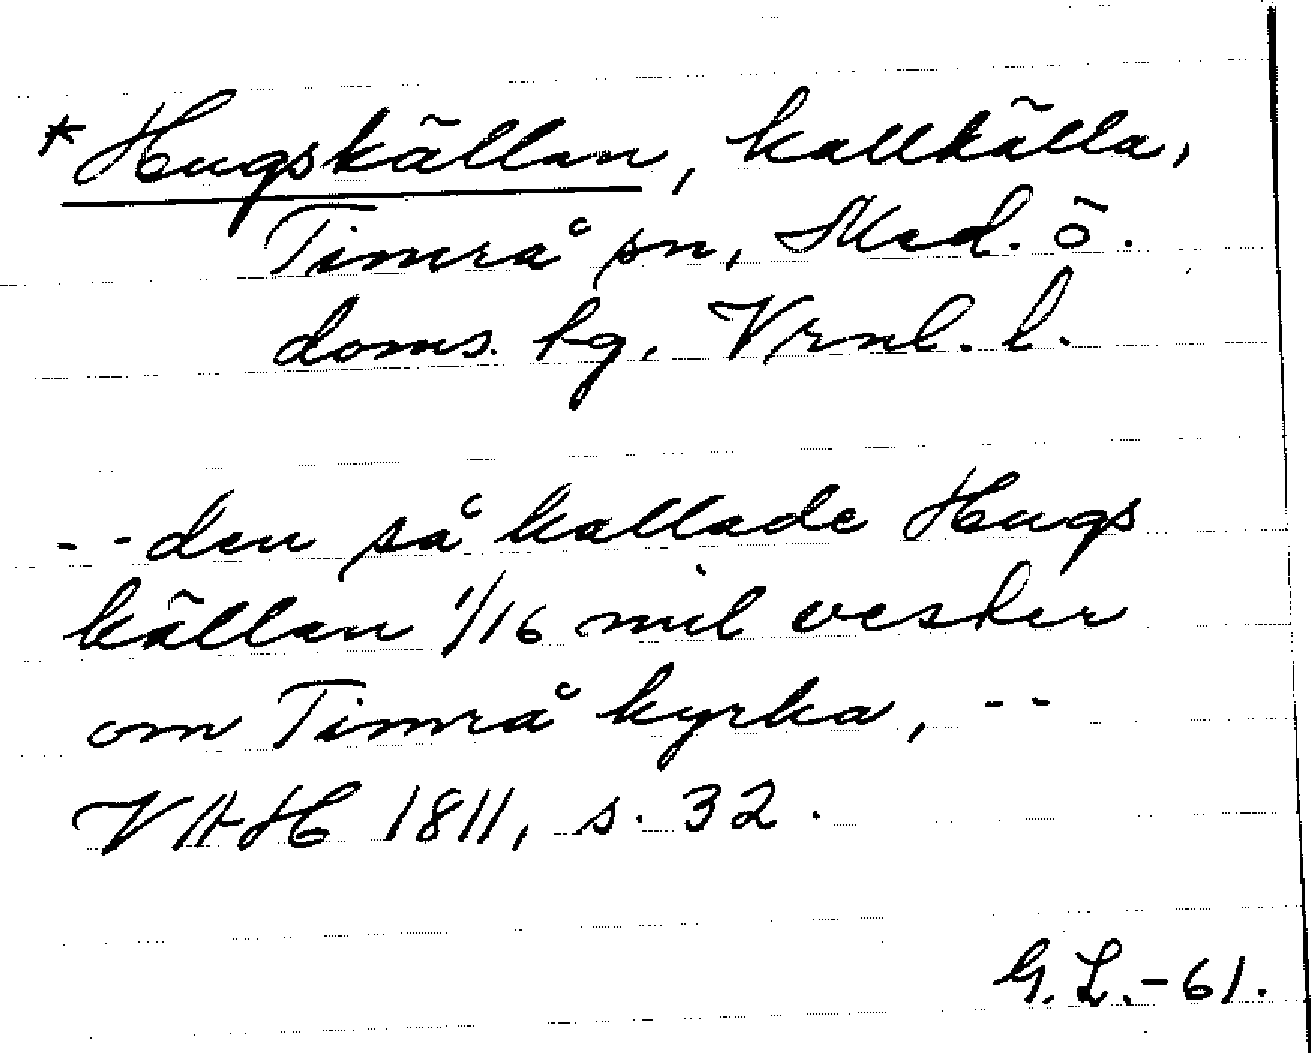 *Hugskällan, kallkälla,
Timrå sn, Med. ö.
doms. tg. Vrnl. l.
- - den så kallade Hugs
källan 1/16 mil vester
om Timrå kyrka, - -
VAH 1811, s. 32.
G. L. - 61.